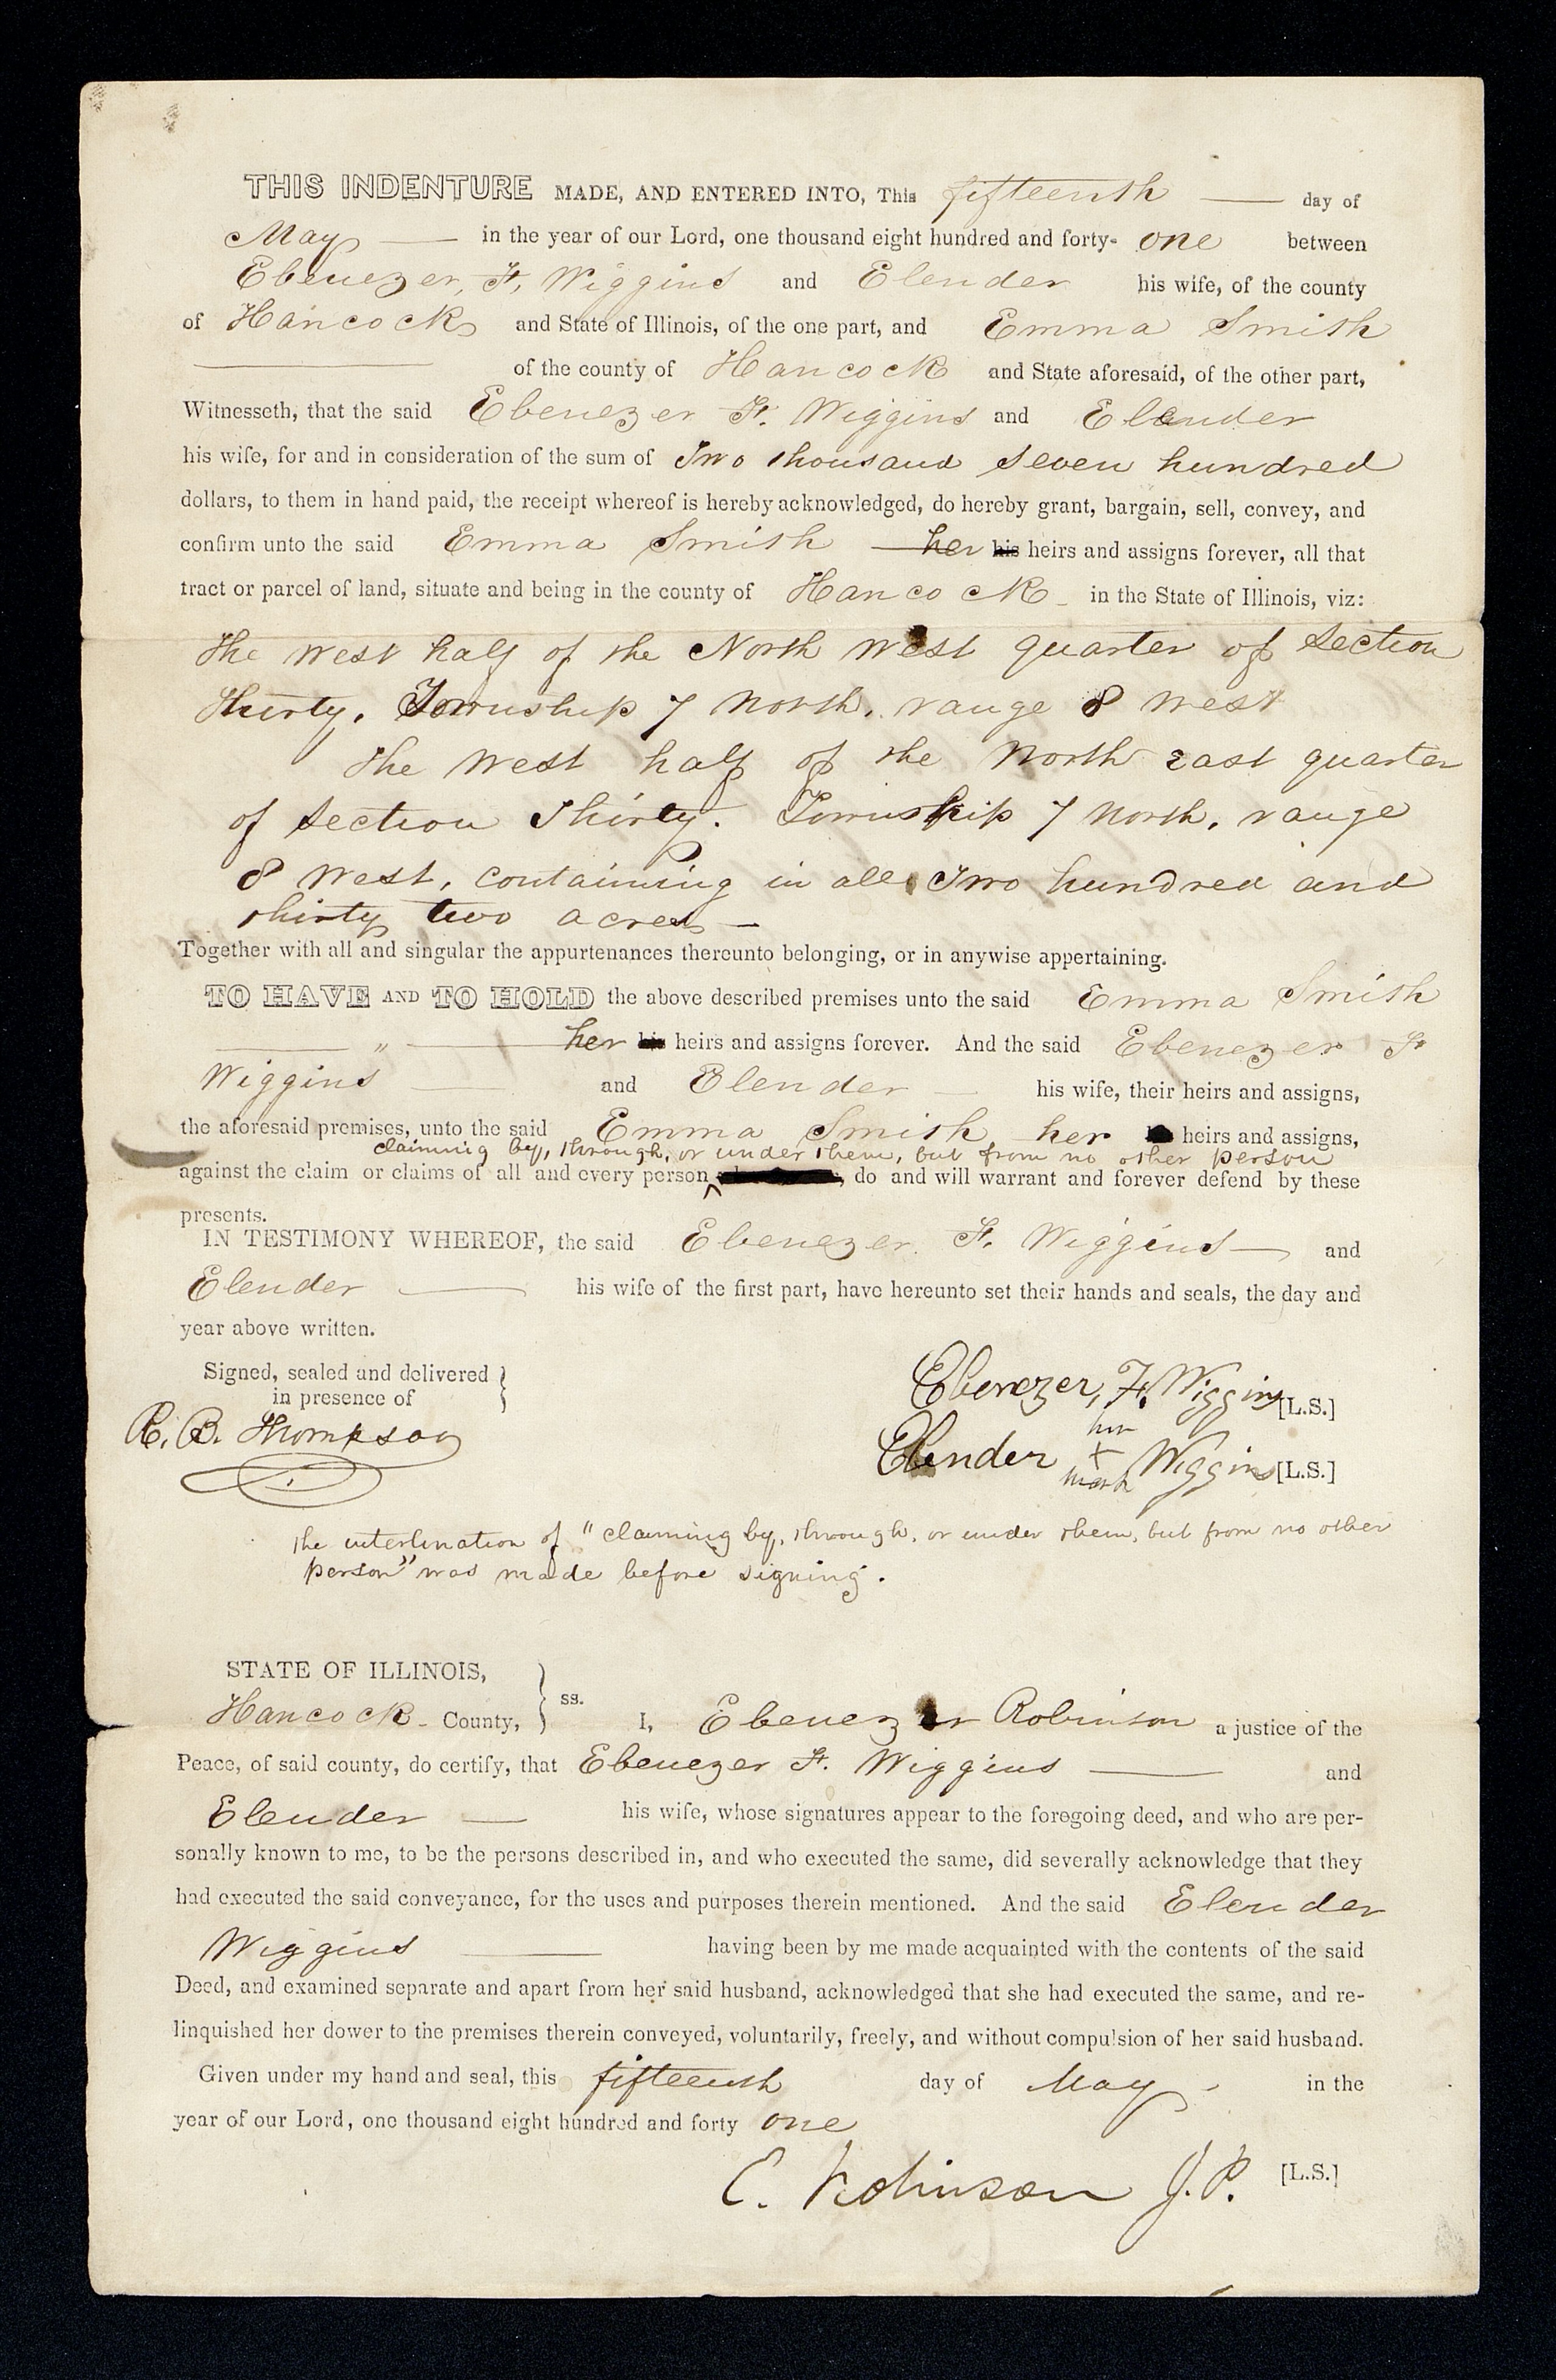 THIS INDENTURE MADE, AND ENTERED INTO, This fifteenth — day of
May — in the year of our Lord, one thousand eight hundred and forty- one between
Ebenezer, F, Wiggins and Elender his wife, of the county
of Hancock and State of Illinois, of the one part, and Emma Smith
— of the county of Hancock and State aforesaid, of the other part,
Witnesseth, that the said Ebenezer F. Wiggins and Elender
his wife, for and in consideration of the sum of Two thousand seven hundred
dollars, to them in hand paid, the receipt whereof is hereby acknowledged, do hereby grant, bargain, sell, convey, and
confirm unto the said Emma Smith — her his heirs and assigns forever, all that
tract or parcel of land, situate and being in the county of Hancock - in the State of Illinois, viz:
The west half of the North west quarter of Section
Thirty. Township 7 North. range 8 west
The west half of the North east quarter
of section Thirty. Township 7 North, range
8 West, containing in all Two hundred and
thirty two acres —
Together with all and singular the appurtenances thereunto belonging, or in anywise appertaining.
TO HAVE AND TO HOLD the above described premises unto the said Emma Smith
— " — her his heirs and assigns forever. And the said Ebenezer F.
Wiggins — and Elender — his wife, their heirs and assigns,
the aforesaid premises, unto the said Emma Smith, her heirs and assigns,
claiming by, through, or under them, but from no other person
against the claim or claims of all and every person ^ , do and will warrant and forever defend by these
presents.
IN TESTIMONY WHEREOF, the said Ebenezer. F. Wiggins — and
Elender — his wife of the first part, have hereunto set their hands and seals, the day and
year above written.
Signed, sealed and delivered }
in presence of
R. B. Thompson
Ebenezer, F. Wiggins [L.S.]
her
Elender + Wiggins [L.S.]
mark
The interlination of "claiming by, through, or under them, but from no other
person" was made before signing.
STATE OF ILLINOIS, }
Hancock - County, } ss. I, Ebenezer Robinson a justice of the
Peace, of said county, do certify, that Ebenezer F. Wiggins — and
Elender — his wife, whose signatures appear to the foregoing deed, and who are per-
sonally known to me, to be the persons described in, and who executed the same, did severally acknowledge that they
had executed the said conveyance, for the uses and purposes therein mentioned. And the said Elender
Wiggins — having been by me made acquainted with the contents of the said
Deed, and examined separate and apart from her said husband, acknowledged that she had executed the same, and re-
linquished her dower to the premises therein conveyed, voluntarily, freely, and without compulsion of her said husband.
Given under my hand and seal, this fifteenth day of May - in the
year of our Lord, one thousand eight hundred and forty one
E. Robinson J.P. [L.S.]